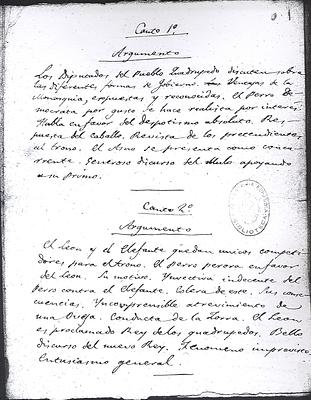 Canto 1º
Argumento
Los Diputados del Pueblo Cuadrupedo discuten sobre
las diferentes formas de Gobierno. Las Ventajas de la
Monarquia, expuestas y reconocidas. El Perro De-
mocrata por gusto se hace realista por interes.
Habla en favor del despotismo absoluto. Res-
puesta del caballo. Revista de los pretendientes
al trono. El Asno se presenta como concu-
rrente. Generoso discurso del Mulo apoyando
a su primo.
Canto 2º
Argumento
El Leon y el Elefante quedan unicos competi-
dores para el trono. El perro perora en favor
del Leon. Su motivo. Ynvectiva indecente del
perro contra el Elefante. Colera de este. Sus conse-
cuencias. Yncomprensible atrevimiento de
una Oveja. Conducta de la Zorra. El Leon
es proclamado Rey de los quadrupedos. Bello
discurso del nuevo Rey. Fenomeno improviso.
Entusiasmo general.